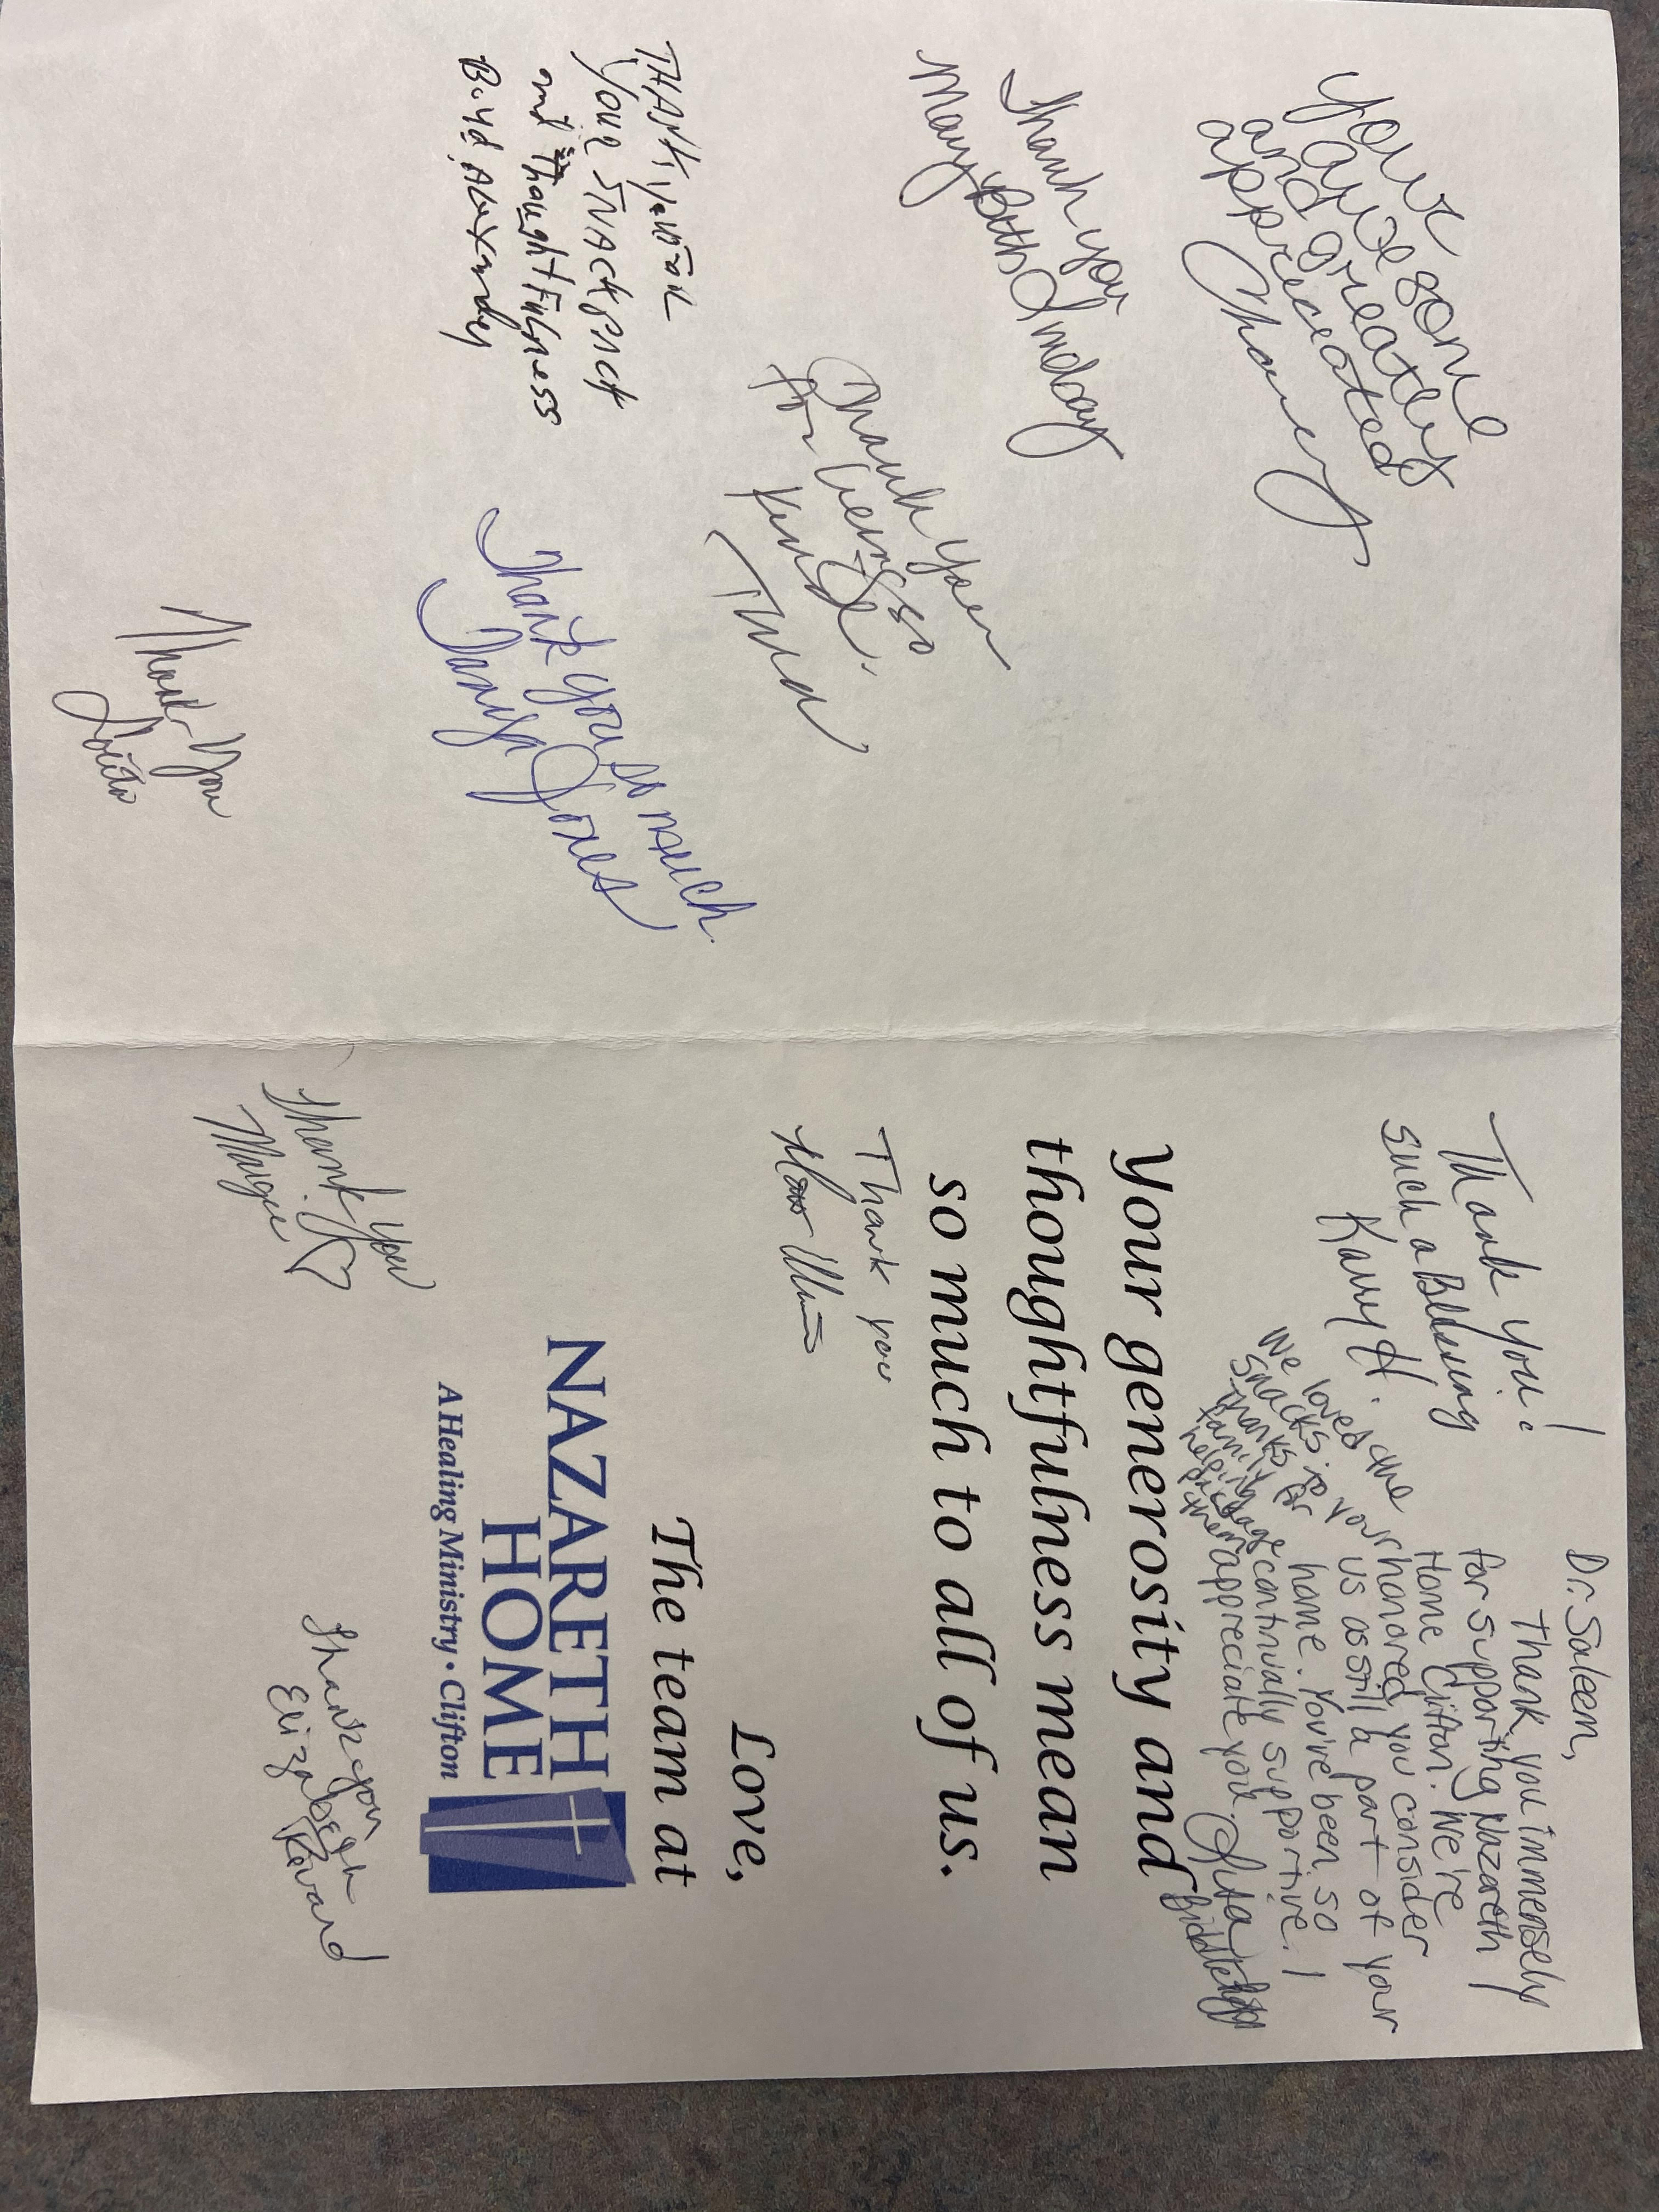 your
awesome
and greatly
appreciated
Chancy
Thank you
Mary Beth Lindsay
Thank you
for being so
kind!
THANK you FOR
YOUR SNACK PACK
and thoughtfulness
Thank you so much
Tanya Jones
Thank You
Thank you!
such a Blessing
Karry H.
We loved the
snacks &
thanks for
helping them
Dr. Saleem,
Thank you immensely
for supporting Nazareth
Home Clifton. We're
honored you consider
us as still a part of your
home. You've been so
continually supportive. I
appreciate you.
Your generosity and
thoughtfulness mean
so much to all of us.
Thank you
Love,
The team at
NAZARETH
HOME
A Healing Ministry • Clifton
Thank you
Margie
Thank you
Elizabeth